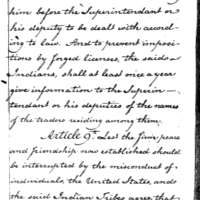 him before the Superintendent or
his deputy to be dealt with accord
ing to law. And to prevent imposi
tions by forged licenses, the said
Indians, shall at least once a year
give information to the Superin
tendant or his deputies of the names
of the traders residing among them.
Article 9th Lest the firm peace
and friendship now established should
be interrupted by the misconduct of
individuals, the United States, and
the said Indian Tribes agree, that